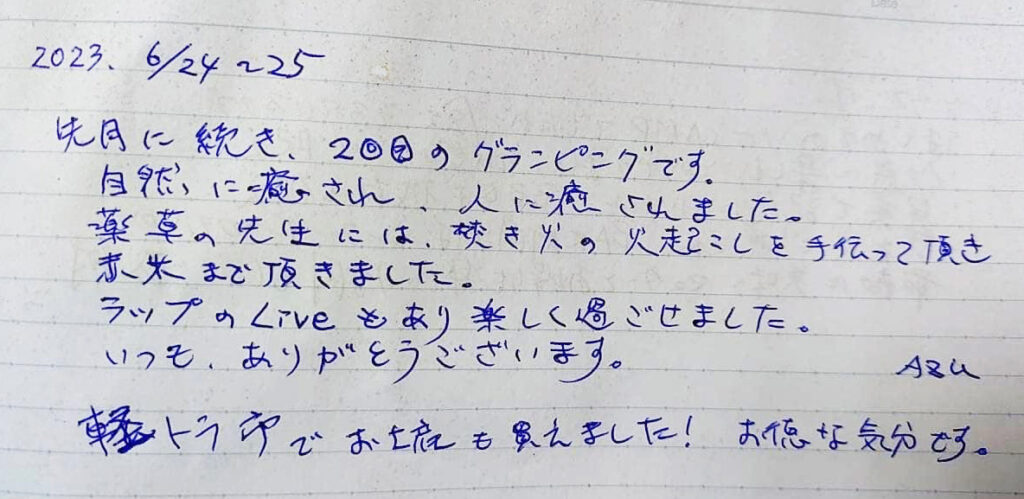 2023. 6/24~25
先月に続き、2回目のグランピングです。
自然に癒され、人に癒されました。
薬草の先生には、焚き火の火起こしを手伝って頂き
赤米まで頂きました。
ラップのLiveもあり楽しく過ごせました。
いつも、ありがとうございます。
AZU
軽トラ市でお土産も買えました! お徳な気分です。